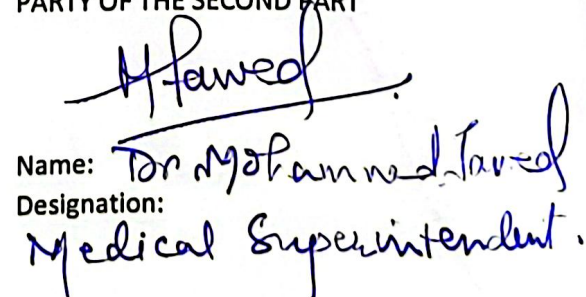 PARTY OF THE SECOND PART
MJawed
Name: Dr Mohammed Javed
Designation:
Medical Superintendent.